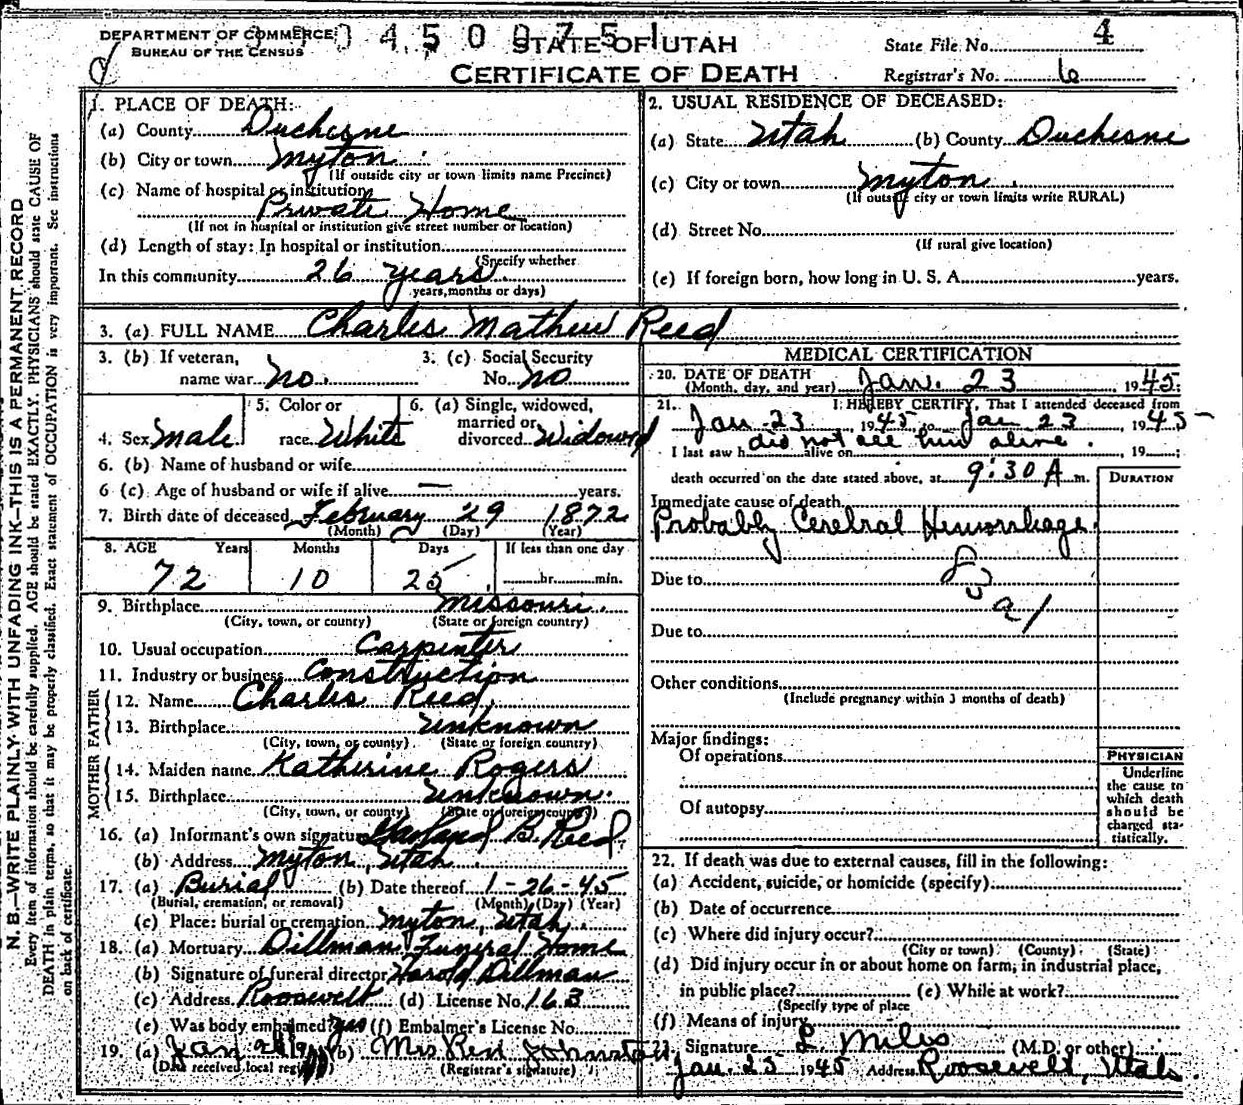 DEPARTMENT OF COMMERCE
BUREAU OF THE CENSUS
0450075
STATE OF UTAH
CERTIFICATE OF DEATH
State File No. 4
Registrar's No. 6
N. B.—WRITE PLAINLY WITH UNFADING INK—THIS IS A PERMANENT RECORD
Every item of information should be carefully supplied. AGE should be stated EXACTLY. PHYSICIANS should state CAUSE OF
DEATH in plain terms, so that it may be properly classified. Exact statement of OCCUPATION is very important. See instructions
on back of certificate.
1. PLACE OF DEATH:
(a) County Duchesne
(b) City or town Myton
(If outside city or town limits name Precinct)
(c) Name of hospital or institution
Private Home
(If not in hospital or institution give street number or location)
(d) Length of stay: In hospital or institution
(Specify whether
In this community 26 years
years, months or days)
2. USUAL RESIDENCE OF DECEASED:
(a) State Utah (b) County Duchesne
(c) City or town Myton
(If outside city or town limits write RURAL)
(d) Street No.
(If rural give location)
(e) If foreign born, how long in U. S. A. years.
3. (a) FULL NAME Charles Mathew Reed
3. (b) If veteran,
name war no
3. (c) Social Security
No. no
4. Sex Male
5. Color or
race White
6. (a) Single, widowed,
married or
divorced Widowed
6. (b) Name of husband or wife
6 (c) Age of husband or wife if alive — years.
7. Birth date of deceased February 29 1872
(Month) (Day) (Year)
8. AGE Years Months Days If less than one day
72 10 25 hr. min.
9. Birthplace Missouri
(City, town, or county) (State or foreign country)
10. Usual occupation Carpenter
11. Industry or business Construction
FATHER
12. Name Charles Reed
13. Birthplace Unknown
(City, town, or county) (State or foreign country)
MOTHER
14. Maiden name Katherine Rogers
15. Birthplace Unknown
(City, town, or county) (State or foreign country)
16. (a) Informant's own signature Garland B. Reed
(b) Address Myton, Utah
17. (a) Burial (b) Date thereof 1-26-45
(Burial, cremation, or removal) (Month) (Day) (Year)
(c) Place: burial or cremation Myton, Utah
18. (a) Mortuary Dillman Funeral Home
(b) Signature of funeral director Harold Dillman
(c) Address Roosevelt (d) License No. 163
(e) Was body embalmed? yes (f) Embalmer's License No.
19. (a) Jan (b) Mrs Johnston
(Date received local registrar) (Registrar's signature)
MEDICAL CERTIFICATION
20. DATE OF DEATH
(Month, day, and year) Jan. 23, 1945
21. I HEREBY CERTIFY, That I attended deceased from
Jan 23, 1945 to Jan 23, 1945
did not see him alive.
I last saw h alive on 19
death occurred on the date stated above, at 9:30 A m.
DURATION
Immediate cause of death
Probably Cerebral Hemorrhage.
Due to
Due to
Other conditions
(Include pregnancy within 3 months of death)
Major findings:
Of operations
Of autopsy
PHYSICIAN
Underline
the cause to
which death
should be
charged sta-
tistically.
22. If death was due to external causes, fill in the following:
(a) Accident, suicide, or homicide (specify):
(b) Date of occurrence
(c) Where did injury occur?
(City or town) (County) (State)
(d) Did injury occur in or about home on farm, in industrial place,
in public place? (e) While at work?
(Specify type of place
(f) Means of injury
23. Signature L Miles (M.D. or other)
Jan. 25 1945 Address Roosevelt, Utah.